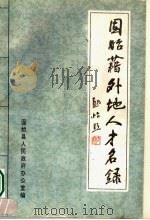 固始藉外地人才名錄
固始县人民政府办公室编